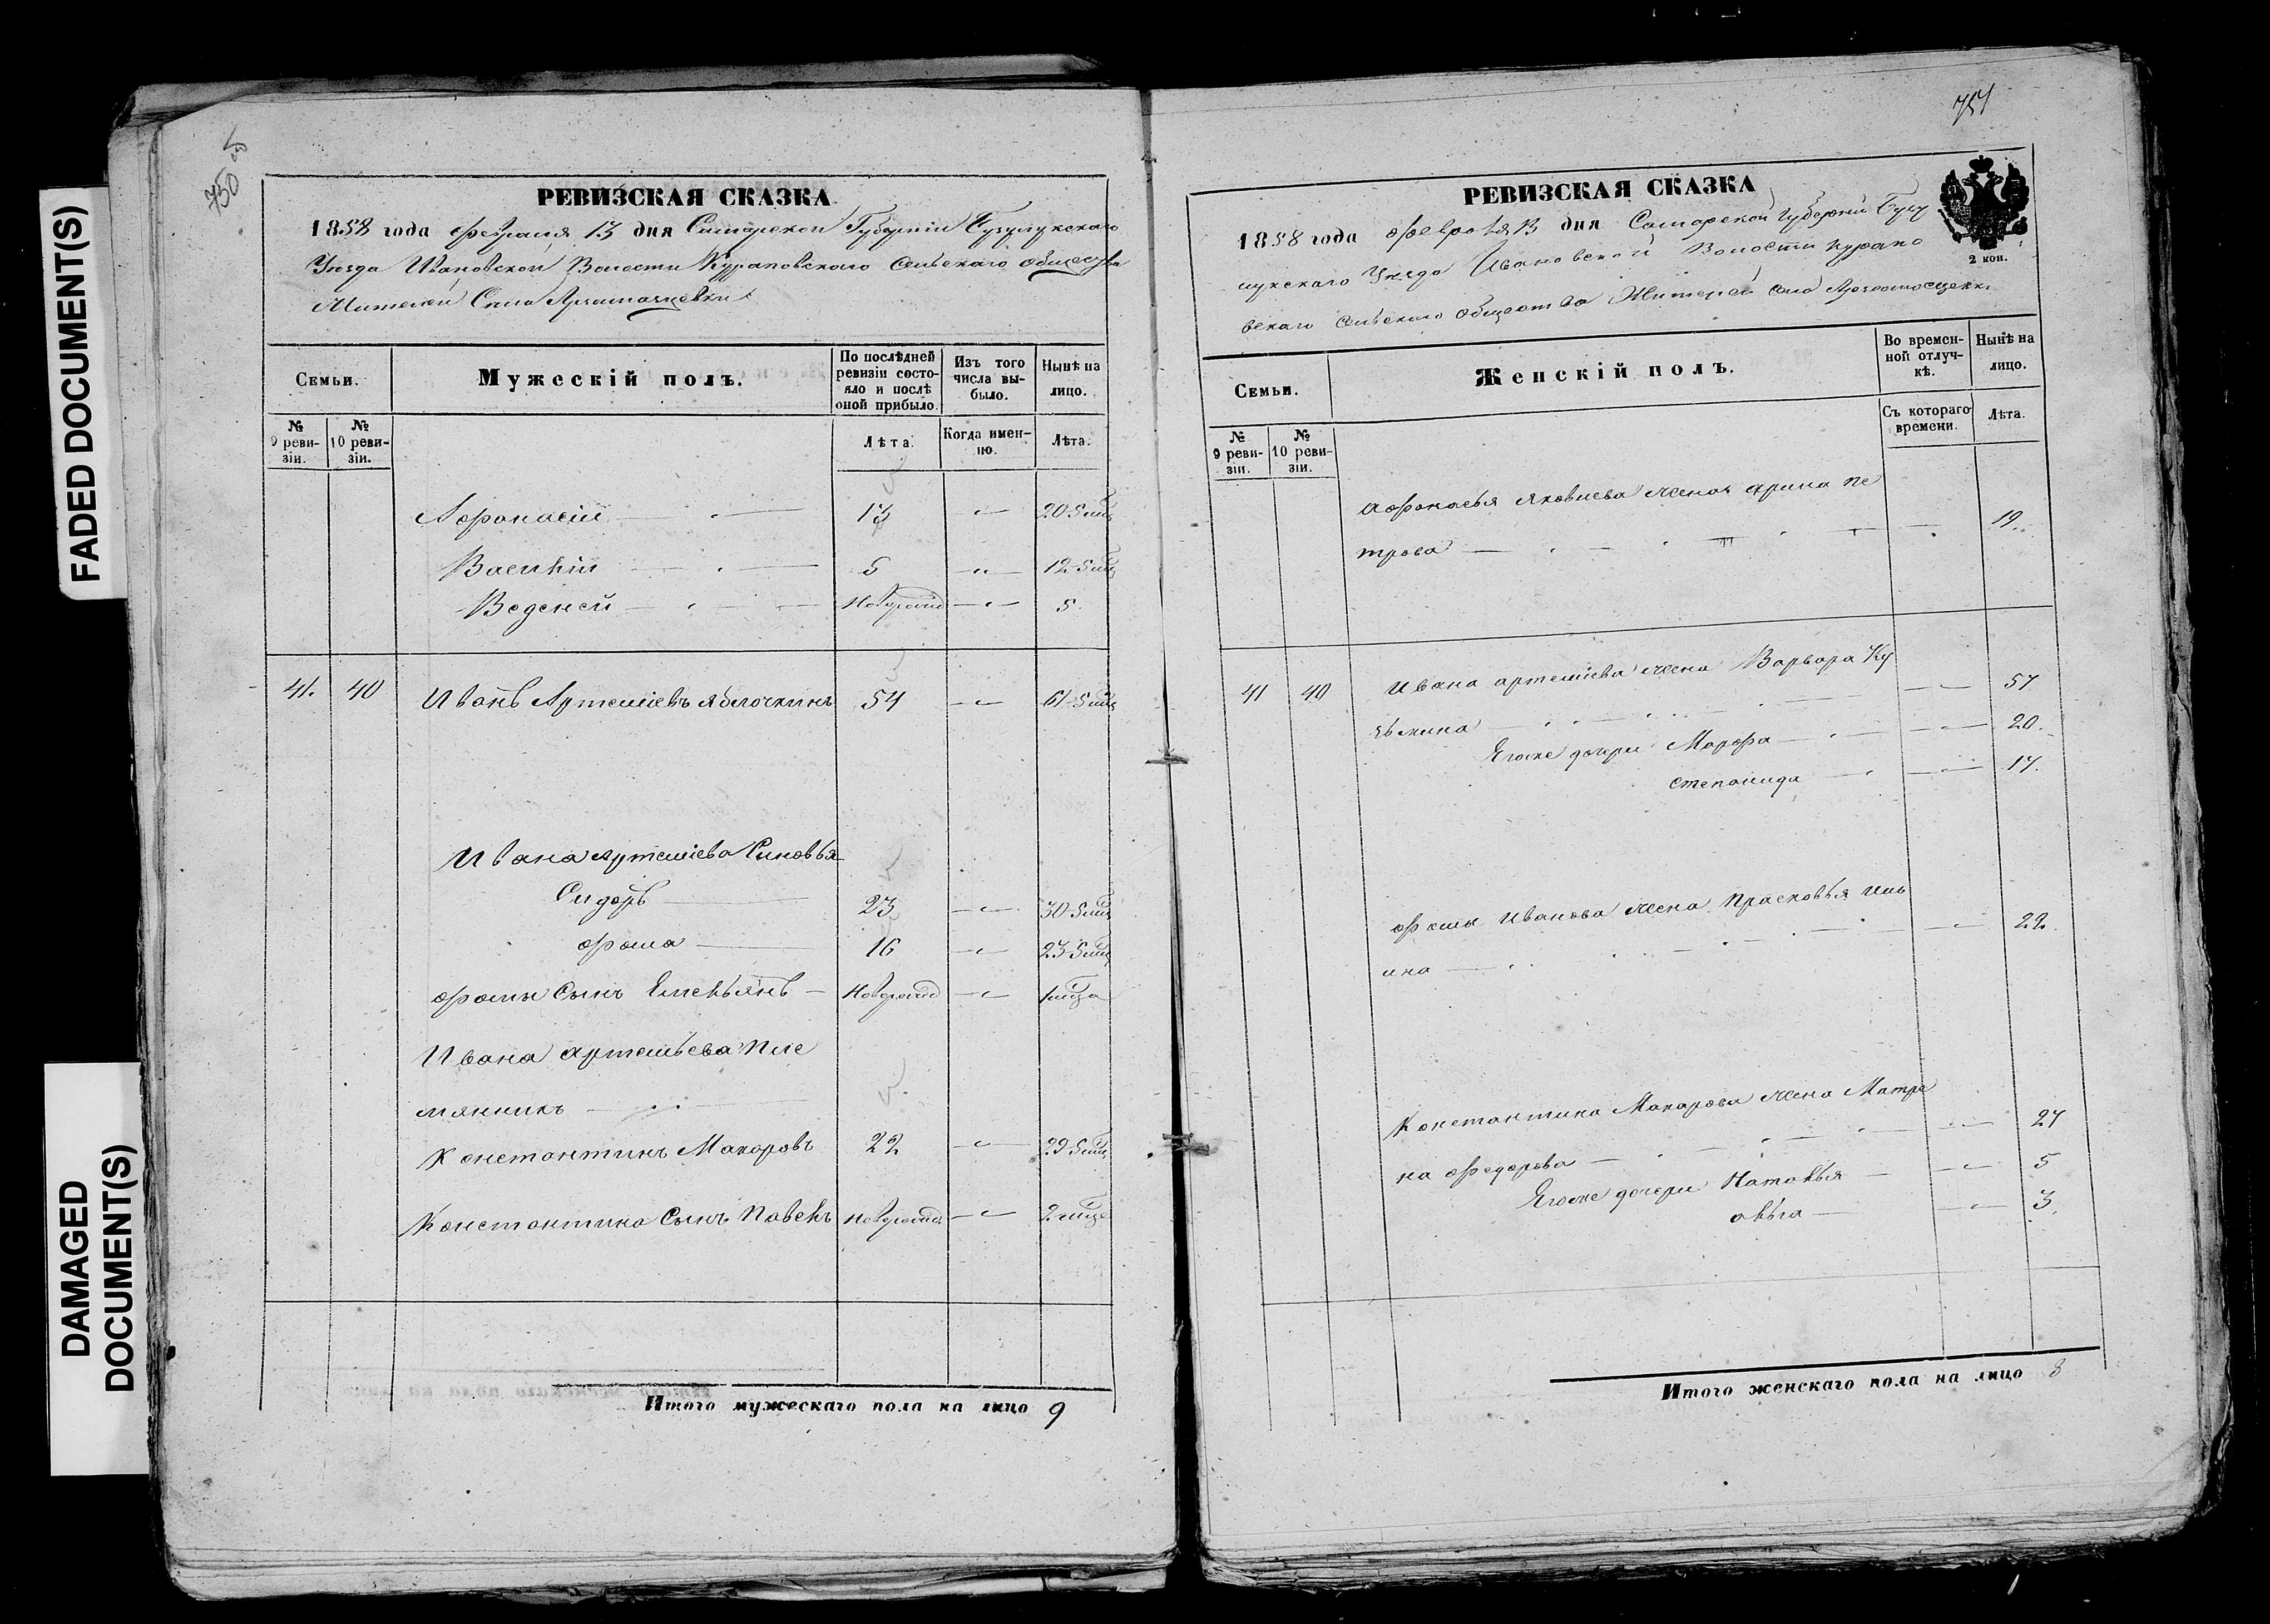 FADED DOCUMENT(S)
DAMAGED
DOCUMENT(S)
750 об
РЕВИЗСКАЯ СКАЗКА
1858 года февраля 13 дня Самарской Губерніи Бузулукскаго
Уезда Ивановской Волости Кураповскаго сельскаго общества
Жителей Села
Семьи.
Мужескій полъ.
По послѣдней
ревизіи состо-
яло и послѣ
оной прибыло.
Изъ того
числа вы-
было.
Нынѣ на
лицо.
№
9 реви-
зіи.
№
10 реви-
зіи.
Лѣта.
Когда имен-
но.
Лѣта.
Афонасій 13 20 5 мц
Василій 5 12 5 мц
Веденей Новорожд 5
41. 40 Иванъ Артеміевъ Яблочкинъ 54 61 5 мц
Ивана Артеміева Сыновья
Сидоръ 23 30 5 мц
Фома 16 23 5 мц
Фомы Сынъ Емельянъ Новорожд 1 мца
Ивана Артемьева пле
мянникъ
Константинъ Макаровъ 22 29 5 мц
Константина Сынъ Павелъ Новорожд 2 мца
Итого мужескаго пола на лицо 9
751
РЕВИЗСКАЯ СКАЗКА
2 коп.
1858 года февраля 13 дня Самарской Губерніи Бузу
лукскаго Уезда Ивановской Волости Курапо
вскаго сельскаго общества Жителей села
Семьи.
Женскій полъ.
Во времен-
ной отлуч-
кѣ.
Нынѣ на
лицо.
№
9 реви-
зіи.
№
10 реви-
зіи.
Съ котораго
времени.
Лѣта.
Афонасья Яковлева жена Арина Пе
трова 19
41 40 Ивана Артеміева жена Варвара Ку
зьмина 57
Егоже дочери Марфа 20
Степанида 17
Фомы Иванова жена Прасковья Иль
ина 22
Константина Макарова жена Матре
на Федорова 27
Егоже дочери Наталья 5
Ольга 3
Итого женскаго пола на лицо 8